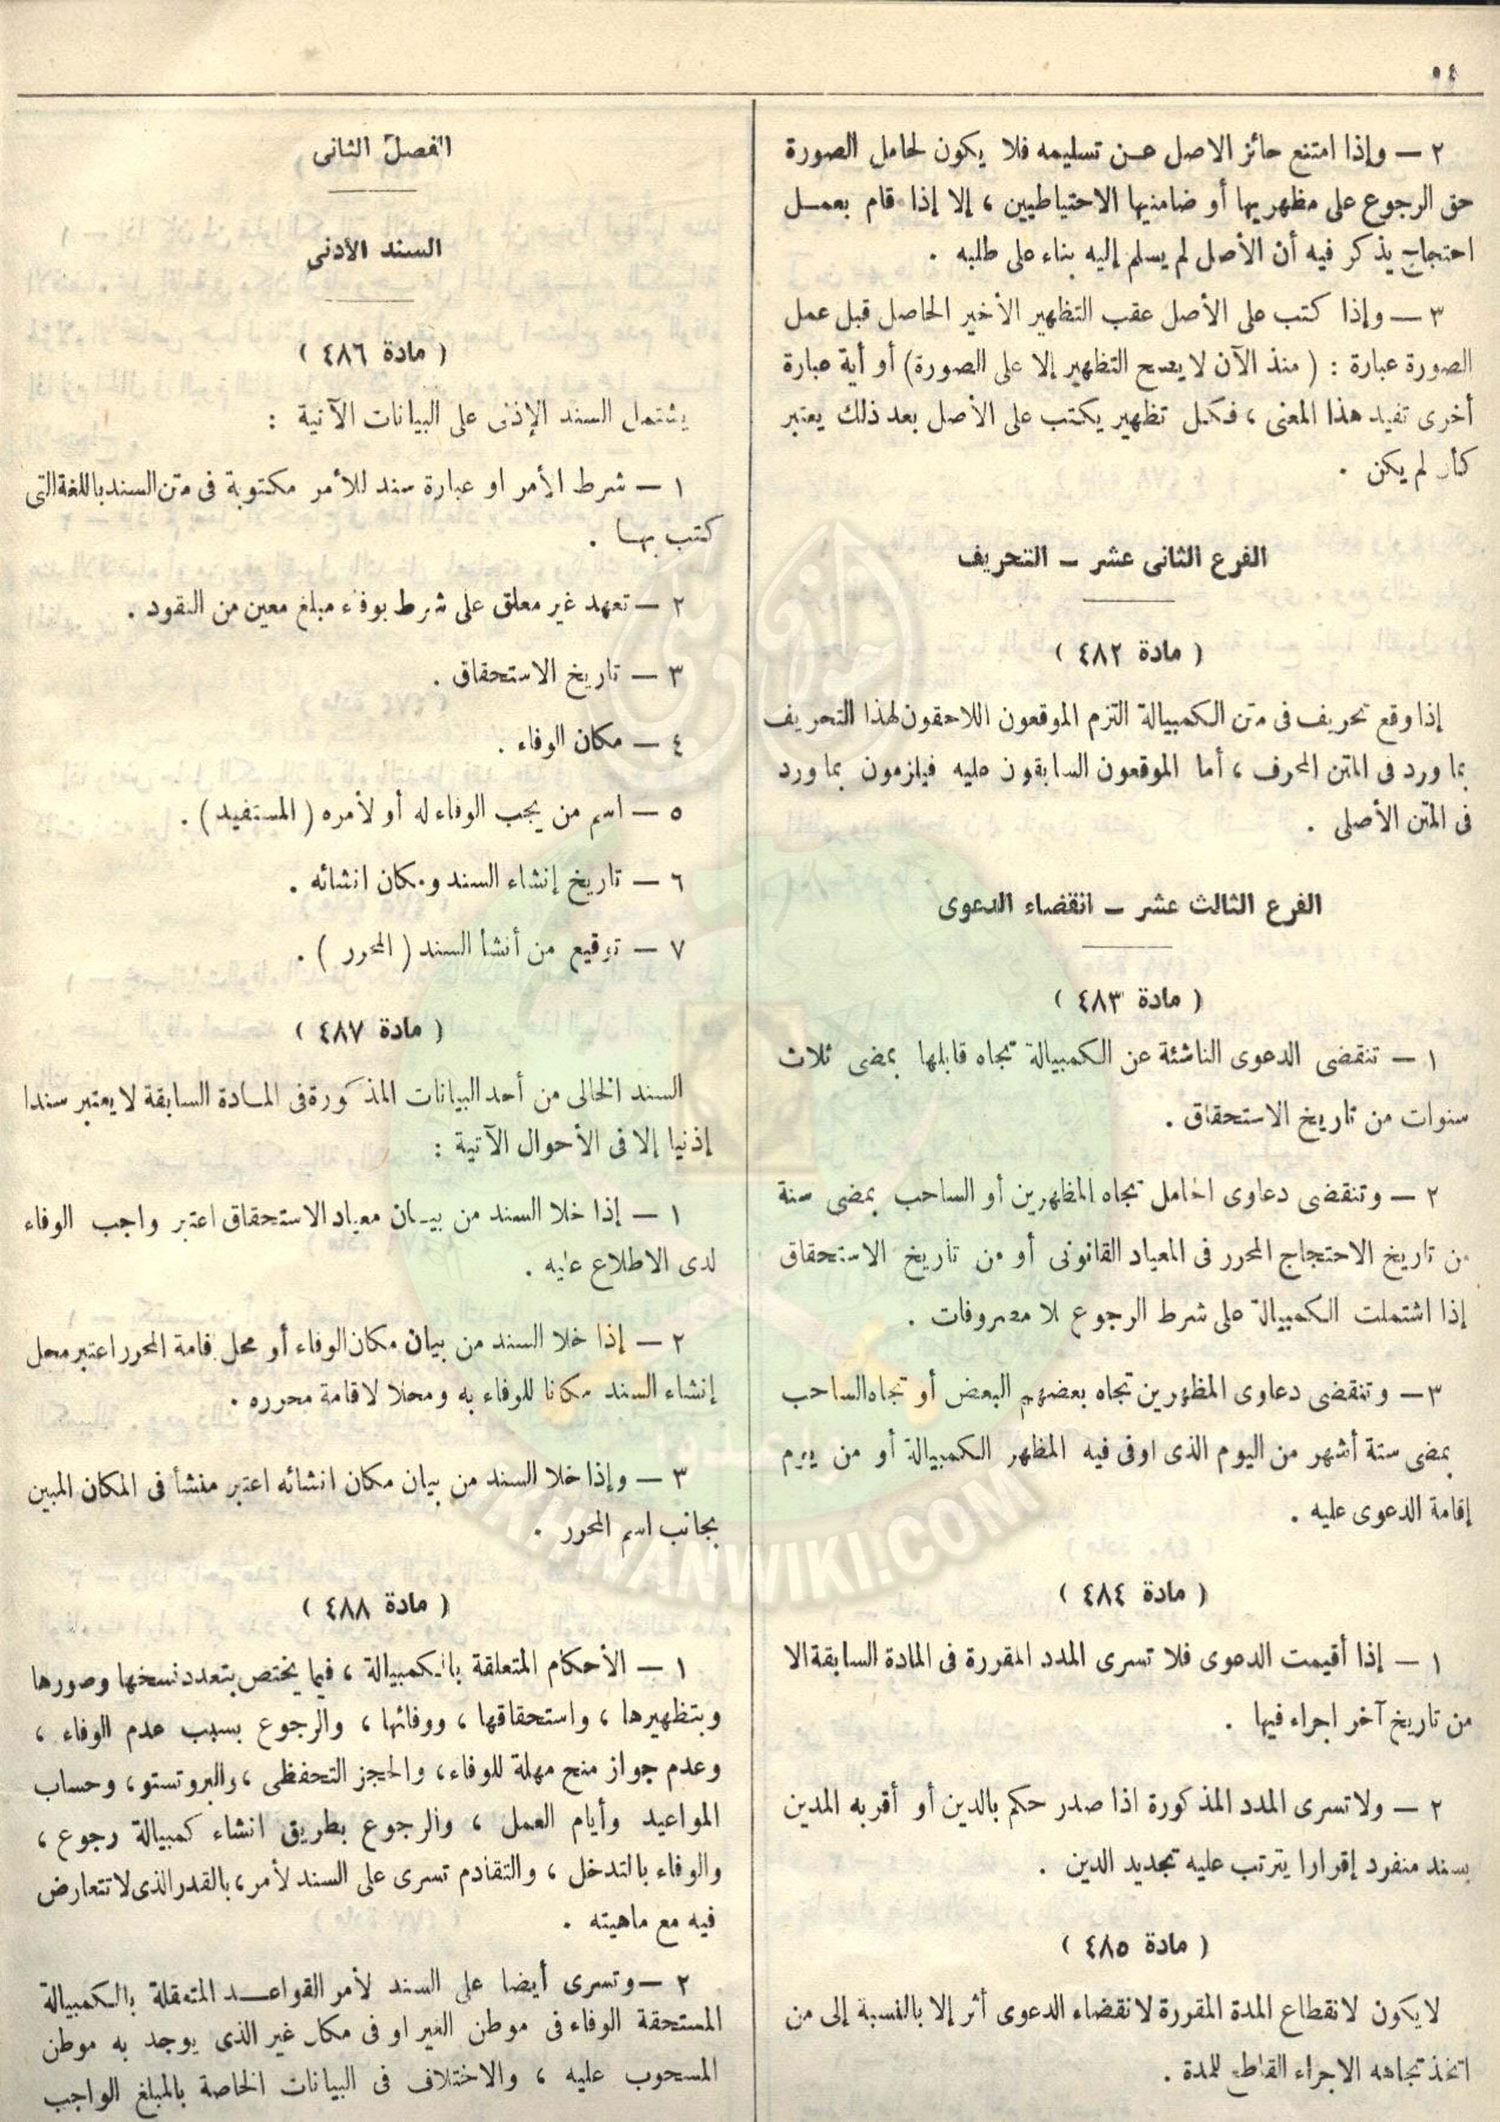 ٥٤
٢ — وإذا امتنع حائز الاصل عـن تسليمه فلا يكون لحامل الصورة
حق الرجوع على مظهريها أو ضامنيها الاحتياطيين ، إلا إذا قام بعمـل
احتجاج يذكر فيه أن الأصل لم يسلم إليه بناء على طلبه .
٣ — وإذا كتب على الأصل عقب التظهير الأخير الحاصل قبل عمل
الصورة عبارة : ( منذ الآن لا يصح التظهير إلا على الصورة) أو أية عبارة
أخرى تفيد هذا المعنى ، فكل تظهير يكتب على الأصل بعد ذلك يعتبر
كأن لم يكن .
الفرع الثانى عشر — التحريف
( مادة ٤٨٢ )
إذا وقع تحريف فى متن الكمبيالة التزم الموقعون اللاحقون لهذا التحريف
بما ورد فى المتن المحرف ، أما الموقعون السابقون عليه فيلزمون بما ورد
فى المتن الأصلى .
الفرع الثالث عشر — انقضاء الدعوى
( مادة ٤٨٣ )
١ — تنقضى الدعوى الناشئة عن الكمبيالة تجاه قابلها بمضى ثلاث
سنوات من تاريخ الاستحقاق .
٢ — وتنقضى دعاوى الحامل تجاه المظهرين أو الساحب بمضى سنة
من تاريخ الاحتجاج المحرر فى المعياد القانونى أو من تاريخ الاستحقاق
إذا اشتملت الكمبيالة على شرط الرجوع بلا مصروفات .
٣ — وتنقضى دعاوى المظهرين تجاه بعضهم البعض أو تجاه الساحب
بمضى ستة أشهر من اليوم الذى اوفى فيه المظهر الكمبيالة أو من يوم
إقامة الدعوى عليه .
( مادة ٤٨٤ )
١ — إذا أقيمت الدعوى فلا تسرى المدد المقررة فى المادة السابقة الا
من تاريخ آخر اجراء فيها .
٢ — ولا تسرى المدد المذكورة اذا صدر حكم بالدين أو أقر به المدين
بسند منفرد إقرارا يترتب عليه تجديد الدين .
( مادة ٤٨٥ )
لا يكون لانقطاع المدة المقررة لانقضاء الدعوى أثر إلا بالنسبة إلى من
اتخذ تجاهه الاجراء القاطع للمدة .
الفصل الثانى
السند الأدنى
( مادة ٤٨٦ )
يشتمل السند الإذنى على البيانات الآتية :
١ — شرط الأمر او عبارة سند للأمر مكتوبة فى متن السند باللغة التى
كتب بهـا .
٢ — تعهد غير معلق على شرط بوفاء مبلغ معين من النقود .
٣ — تاريخ الاستحقاق .
٤ — مكان الوفاء .
٥ — اسم من يجب الوفاء له أو لأمره ( المستفيد ) .
٦ — تاريخ إنشاء السند ومكان انشائه .
٧ — توقيع من أنشأ السند ( المحرر ) .
( مادة ٤٨٧ )
السند الخالى من أحد البيانات المذكورة فى المـادة السابقة لا يعتبر سندا
إذنيا إلا فى الأحوال الآتية :
١ — إذا خلا السند من بيـان معياد الاستحقاق اعتبر واجب الوفاء
لدى الاطلاع عليه .
٢ — إذا خلا السند من بيان مكان الوفاء أو محل قامة المحرر اعتبر محل
إنشاء السند مكانا للوفاء به ومحلا لاقامة محرره .
٣ — وإذا خلا السند من بيان مكان انشائه اعتبر منشأ فى المكان المبين
بجانب اسم المحرر .
( مادة ٤٨٨ )
١ — الأحكام المتعلقة بالكمبيالة ، فيما يختص بتعدد نسخها وصورها
وبتظهيرها ، واستحقاقها ، ووفائها ، والرجوع بسبب عدم الوفاء ،
وعدم جواز منح مهلة للوفاء ، والحجز التحفظى ، والبروتستو ، وحساب
المواعيد وأيام العمل ، والرجوع بطريق انشاء كمبيالة رجوع ،
والوفاء بالتدخل ، والتقادم تسرى على السند لأمر ، بالقدر الذى لا تتعارض
فيه مع ماهيته .
٢ — وتسرى أيضا على السند لأمر القواعـد المتعقلة بالكمبيالة
المستحقة الوفاء فى موطن الغير او فى مكان غير الذى يوجد به موطن
المسحوب عليه ، والاختلاف فى البيانات الخاصة بالمبلغ الواجب
IKHWANWIKI.COM